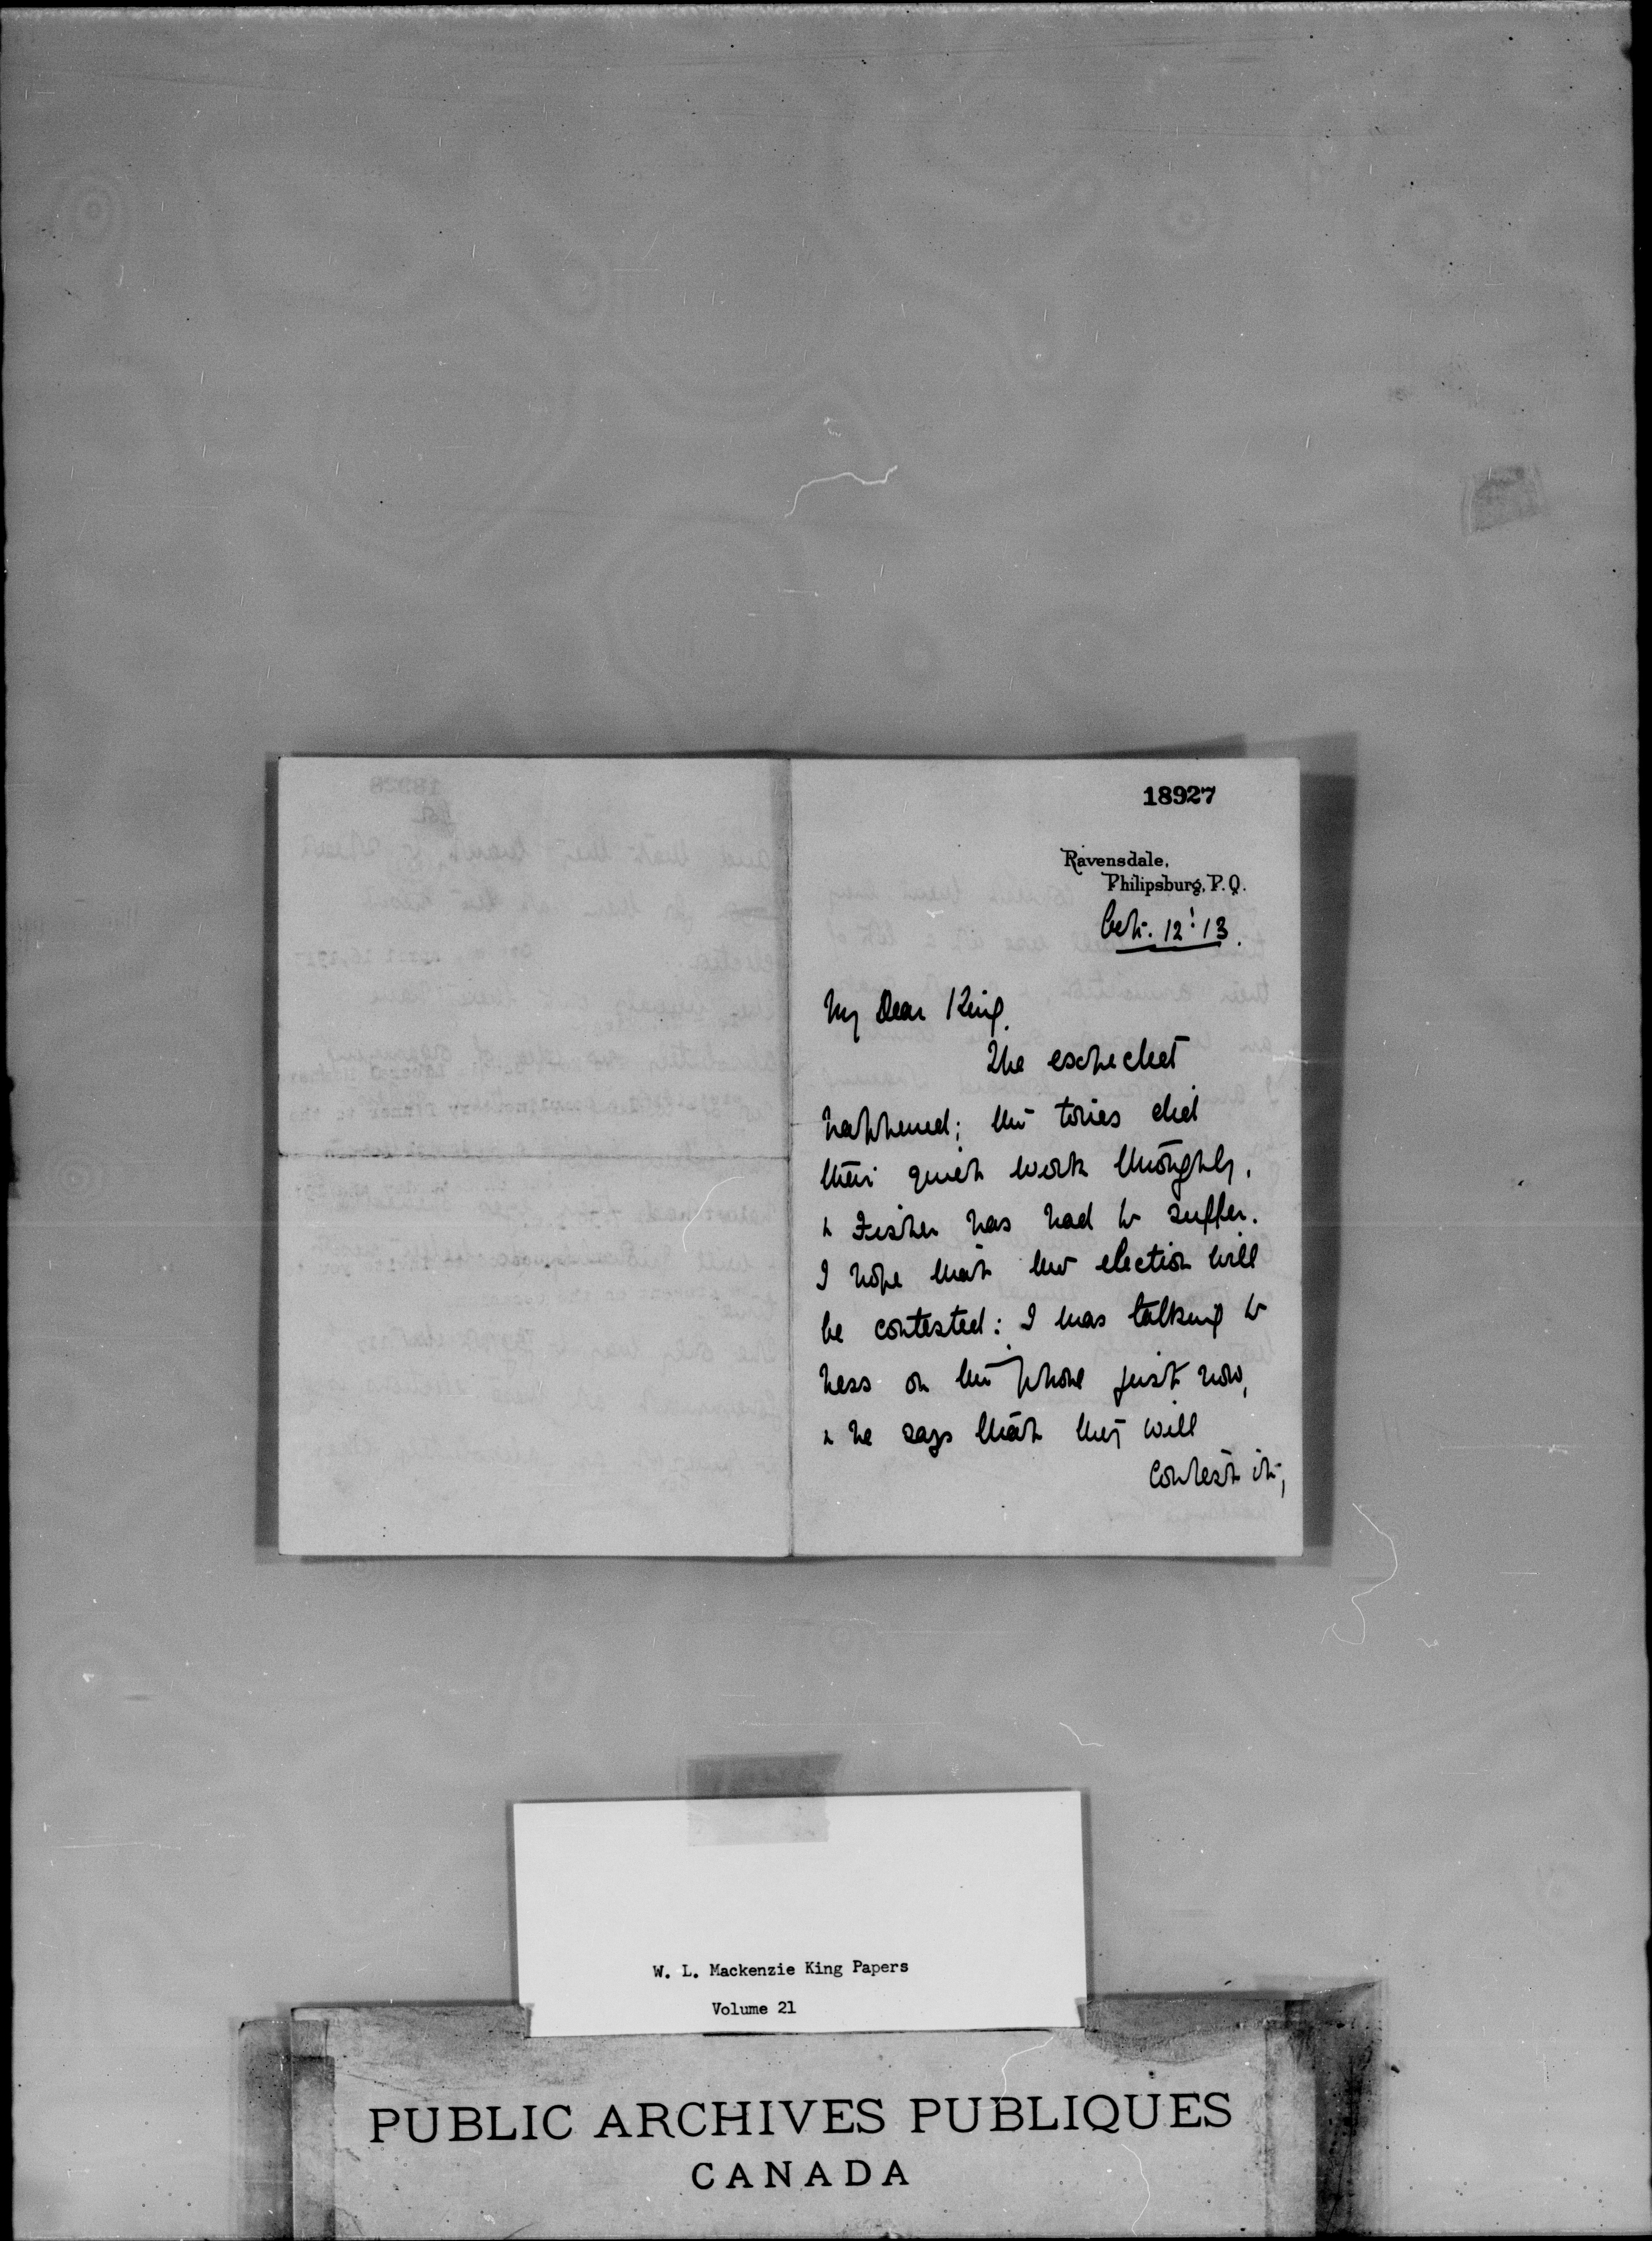 18927
Ravensdale,
Philipsburg, P.Q.
Oct. 12: 13.
My Dear King.
The expected
happened; the tories did
their quiet work thoroughly,
& Fisher has had to suffer.
I hope that the election will
be contested: I was talking to
Ness on the phone just now,
& he says that they will
contest it;
W. L. Mackenzie King Papers
Volume 21
PUBLIC ARCHIVES PUBLIQUES
CANADA